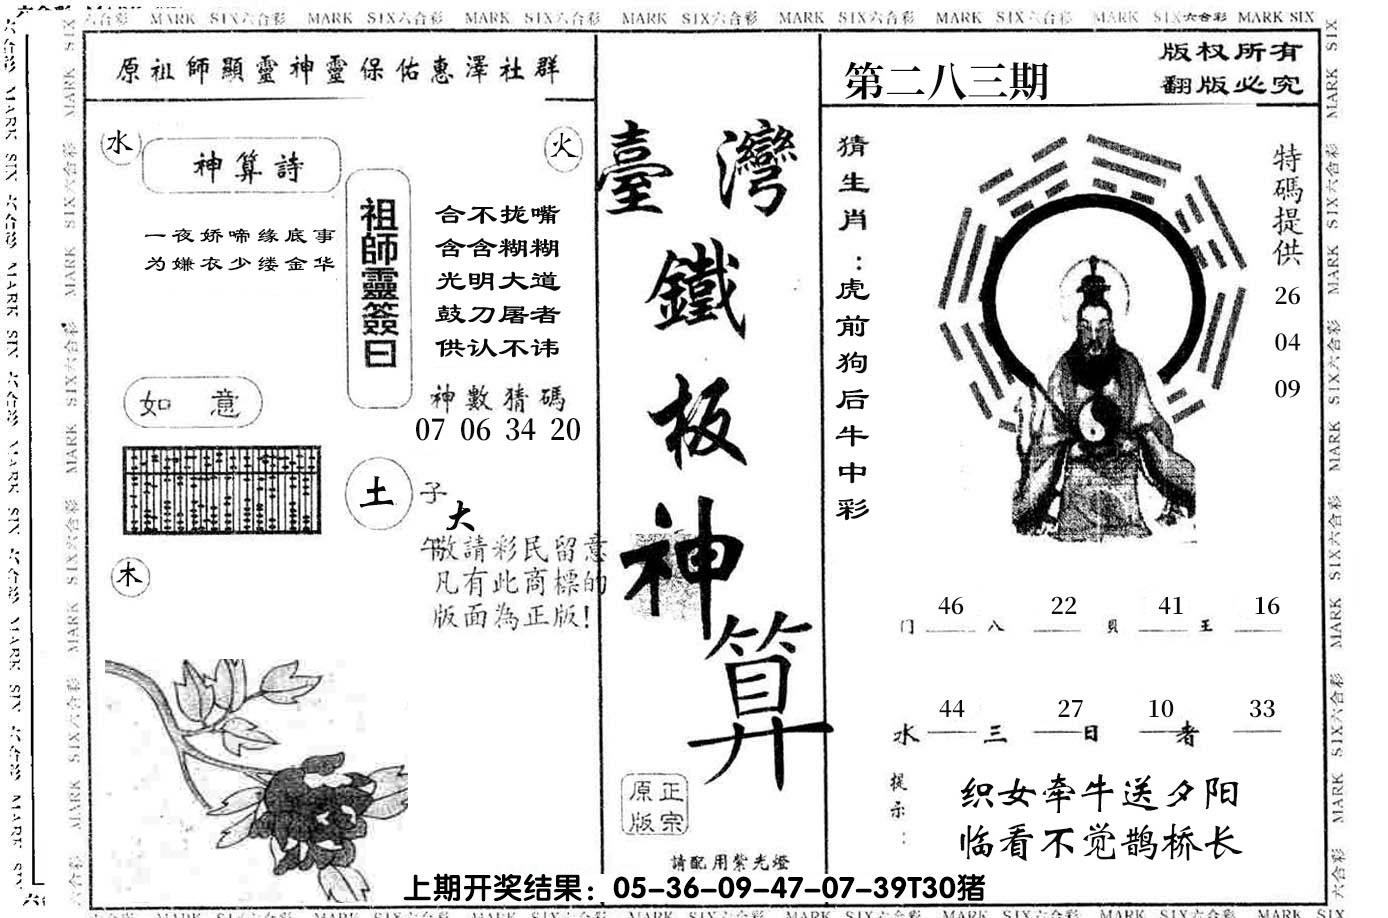 MARK SIX六合彩 MARK SIX六合彩 MARK SIX六合彩 MARK SIX六合彩 MARK SIX六合彩 MARK SIX六合彩 MARK SIX六合彩 MARK SIX
原祖師顯靈神靈保佑惠澤社群
水
神算詩
火
一夜娇啼缘底事
为嫌衣少缕金华
祖師靈簽曰
合不拢嘴
含含糊糊
光明大道
鼓刀屠者
供认不讳
神數猜碼
07 06 34 20
如意
土
子
大
午
敬請彩民留意
凡有此商標的
版面為正版!
木
臺灣
鐵
板
神
算
正宗
原版
請配用紫光燈
第二八三期
版权所有
翻版必究
猜生肖:虎前狗后牛中彩
特碼提供
26
04
09
46 22 41 16
门 八 貝 王
44 27 10 33
水 三 日 者
提示:
织女牵牛送夕阳
临看不觉鹊桥长
上期开奖结果：05-36-09-47-07-39T30猪